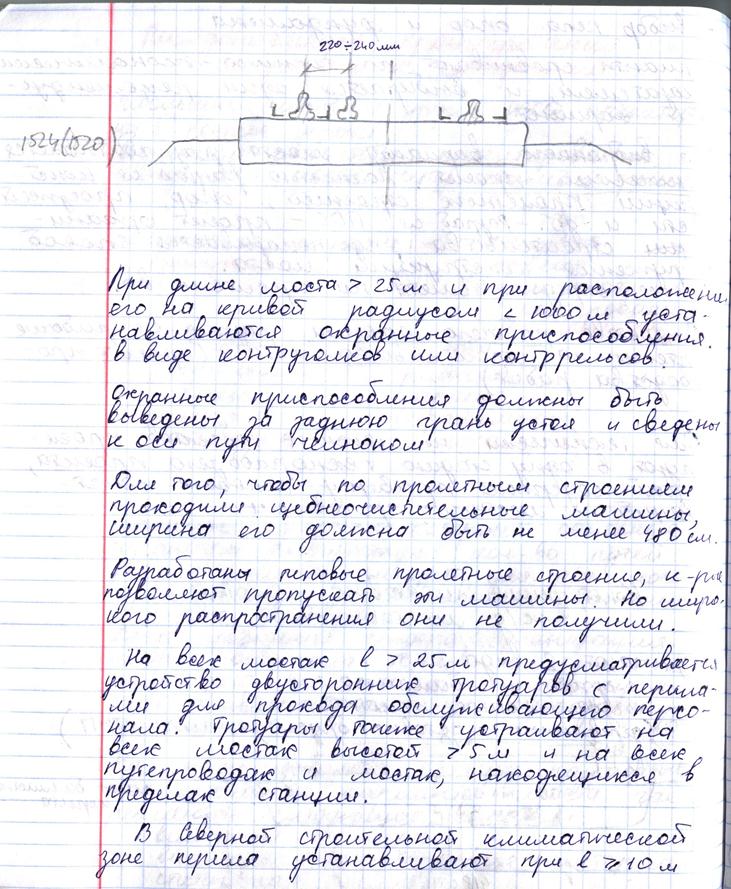 220÷240мм
1524(1520)
При длине моста > 25 м и при расположении
его на кривой радиусом < 1000 м уста-
навливаются охранные приспособления
в виде контруголков или контррельсов.
Охранные приспособления должны быть
выведены за заднюю грань устоя и сведены
к оси пути челноком
Для того, чтобы по пролетным строениям
проходили щебнеочистительные машины,
ширина его должна быть не менее 480 см.
Разработаны типовые пролетные строения, к-рые
позволяют пропускать эти машины. Но широ-
кого распространения они не получили.
На всех мостах l > 25 м предусматривается
устройство двусторонних тротуаров с перила-
ми для прохода обслуживающего персо-
нала. Тротуары также устраивают на
всех мостах высотой > 5 м и на всех
путепроводах и мостах, находящихся в
пределах станции.
В Северной строительной климатической
зоне перила устанавливают при l ≥ 10 м